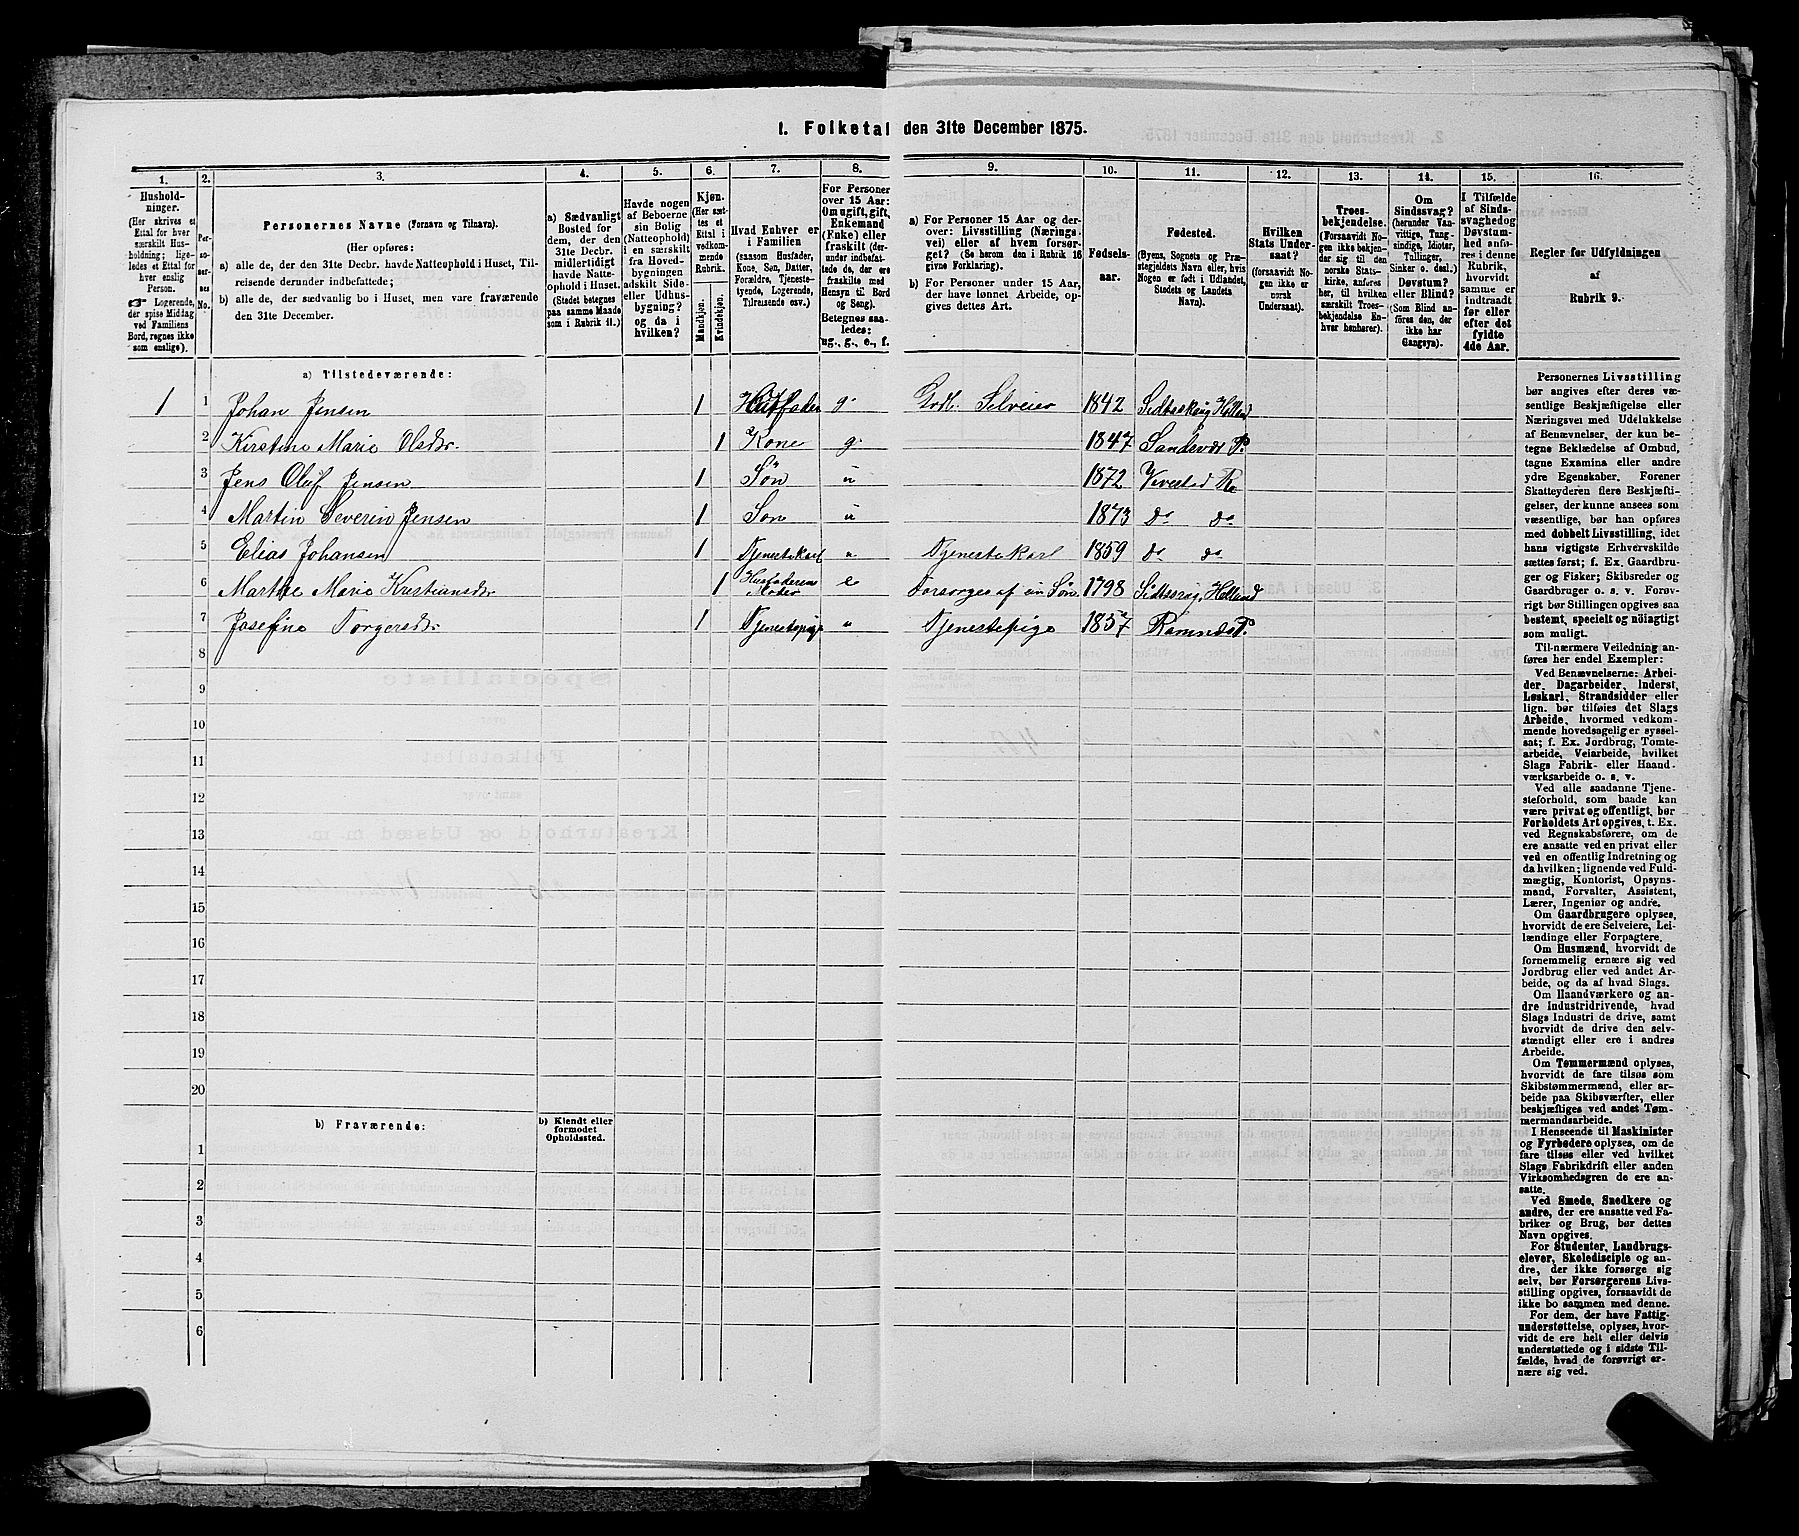 1. Folketal den 31te December 1875.
1. 2. 3. 4. 5. 6. 7. 8. 9. 10. 11. 12. 13. 14. 15. 16.
Husholdninger.
(Her skrives et
Ettal for hver
særskilt Husholdning;
ligeledes et Ettal for
hver enslig
Person.
☞ Logerende,
der spise Middag
ved Familiens
Bord, regnes ikke
som enslige).
Personernes No.
Personernes Navne (Fornavn og Tilnavn).
(Her opføres:
a) alle de, der den 31te Decbr. havde Natteophold i Huset, Tilreisende derunder indbefattede;
b) alle de, der sædvanlig bo i Huset, men vare fraværende
den 31te December.
a) Sædvanligt
Bosted for
dem, der den
31te Decbr.
midlertidigt
havde Natteophold i Huset.
(Stedet betegnes
paa samme Maade
som i Rubrik 11.)
Havde nogen
af Beboerne
sin Bolig
(Natteophold)
i en særskilt
fra Hovedbygningen
adskilt Side-
eller Udhusbygning?
og da i
hvilken?
Kjøn.
(Her sættes et
Ettal i
vedkommende
Rubrik.
Mandkjøn.
Kvindekjøn.
Hvad Enhver er
i Familien
(saasom Husfader,
Kone, Søn, Datter,
Forældre, Tjenestetyende, Logerende,
Tilreisende osv.)
For Personer
over 15 Aar:
Om ugift, gift,
Enkemand
(Enke) eller
fraskilt (derunder indbefattede de, der ere
fraskilte med
Hensyn til Bord
og Seng).
Betegnes saaledes:
ug., g., e., f.
a) For Personer 15 Aar og derover: Livsstilling (Næringsvei) eller af hvem forsørget? (Se herom den i Rubrik 16
givne Forklaring).
b) For Personer under 15 Aar,
der have lønnet Arbeide, opgives dettes Art.
Fødselsaar.
Fødested.
(Byens, Sognets og Præstegjeldets Navn eller, hvis
Nogen er født i Udlandet,
Stedets og Landets
Navn).
Hvilken
Stats Undersaat?
(forsaavidt Nogen ikke er
norsk
Undersaat).
Troesbekjendelse.
(Forsaavidt Nogen ikke bekjender sig til den
norske Statskirke, anføres
her, til hvilken
særskilt Troesbekjendelse Enhver henhører).
Om
Sindssvag?
(herunder Vanvittige, Tungsindige, Idioter,
Tullinger,
Sinker o. desl.)
Døvstum?
eller Blind?
(Som Blind anføres den, der
ikke har
Gangsyn).
I Tilfælde
af Sindssvaghed og
Døvstumhed anføres i denne
Rubrik,
hvorvidt
samme er
indtraadt
før eller
efter det
fyldte
4de Aar.
Regler for Udfyldningen
af
Rubrik 9.
a) Tilstedeværende:
1 1 Johan Jensen 1 Husfader g. Grdb. Selveier 1842
2 Kirstine Marie Olsdr. 1 Kone g. 1847 Sandeværs P.
3 Jens Oluf Jensen 1 Søn u 1872 Vivestad
4 Martin Severin Jensen 1 Søn u 1873 do do
5 Elias Johansen 1 Tjenestekarl u Tjenestekarl 1859 do do
6 Marthe Marie Kristiansdr 1 Husfaderens Moder e Forsørges af sin Søn. 1798
7 Josefine Torgersdr 1 Tjenestepige u Tjenestepige 1857 Ramnæs P.
8
9
10
11
12
13
14
15
16
17
18
19
20
b) Fraværende:
b) Kjendt eller
formodet
Opholdssted.
1
2
3
4
5
6
Personernes Livsstilling
bør angives efter deres væsentlige Beskjæftigelse eller
Næringsvei med Udelukkelse
af Benævnelser, der kun betegne Beklædelse af Ombud,
tagne Examina eller andre
ydre Egenskaber. Forener
Skatteyderen flere Beskjæftigelser, der kunne ansees som
væsentlige, bør han opføres
med dobbelt Livsstilling, idet
hans vigtigste Erhvervskilde
sættes først; f. Ex. Gaardbruger og Fisker; Skibsreder og
Gaardbruger o. s. v. Forøvrigt bør Stillingen opgives saa
bestemt, specielt og nöiagtigt
som muligt.
Til nærmere Veiledning anføres her endel Exempler:
Ved Benævnelserne: Arbeider, Dagarbeider, Inderst,
Løskarl, Strandsidder eller
lign. bør tilføies det Slags
Arbeide, hvormed vedkommende hovedsagelig er sysselsat; f. Ex. Jordbrug, Tomtearbeide, Veiarbeide, hvilket
Slags Fabrik- eller Haandværksarbeide o. s. v.
Ved alle saadanne Tjenesteforhold, som baade kan
være privat og offentligt, bør
Forholdets Art opgives, t. Ex.
ved Regnskabsførere, om de
ere ansatte ved en privat eller
ved en offentlig Indretning og
da hvilken; lignende ved Fuldmægtig, Kontorist, Opsynsmand, Forvalter, Assistent,
Lærer, Ingeniør og andre.
Om Gaardbrugere oplyses,
hvorvidt de ere Selveiere, Leilændinge eller Forpagtere.
Om Husmænd, hvorvidt de
fornemmelig ernære sig ved
Jordbrug eller ved andet Arbeide, og da af hvad Slags.
Om Haandværkere og andre Industridrivende, hvad
Slags Industri de drive, samt
hvorvidt de drive den selvstændigt eller ere i andres
Arbeide.
Om Tømmermænd oplyses,
hvorvidt de fare tilsøs som
Skibstømmermænd, eller arbeide paa Skibsværfter, eller
beskjæftiges ved andet Tømmermandsarbeide.
I Henseende til Maskinister
og Fyrbødere oplyses, om de
fare tilsøs eller ved hvilket
Slags Fabrikdrift eller anden
Virksomhedsgren de ere ansatte.
Ved Smede, Snedkere og
andre, der ere ansatte ved Fabriker og Brug, bør dettes
Navn opgives.
For Studenter, Landbrugselever, Skoledisciple og andre, der ikke forsørge sig
selv, bør Forsørgerens Livsstilling opgives, forsaavidt de
ikke bo sammen med denne.
For dem, der have Fattigunderstøttelse, oplyses, hvorvidt de ere helt eller delvis
understøttede og i sidste Tilfælde, hvad de forøvrigt ernære sig ved.